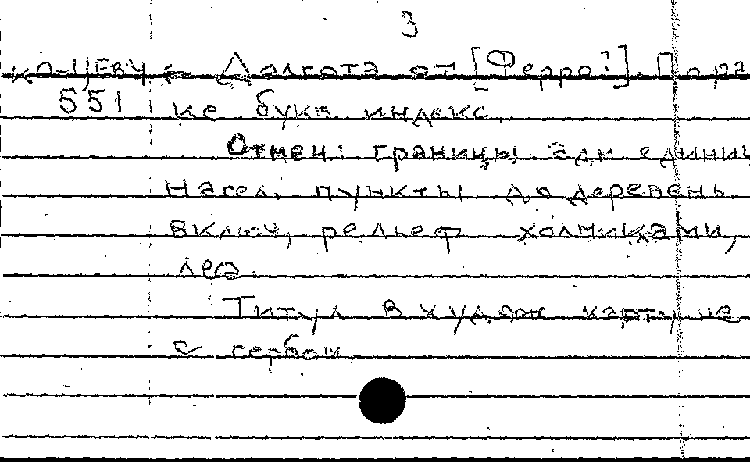 3
Долгота от [Ферро?]. Пара
551 ке букв. индекс.
Отмеч: границы адм единиц
Насел. пункты до деревень
включ, рельеф холмиками,
лес.
Титул в худож картуше
с гербом